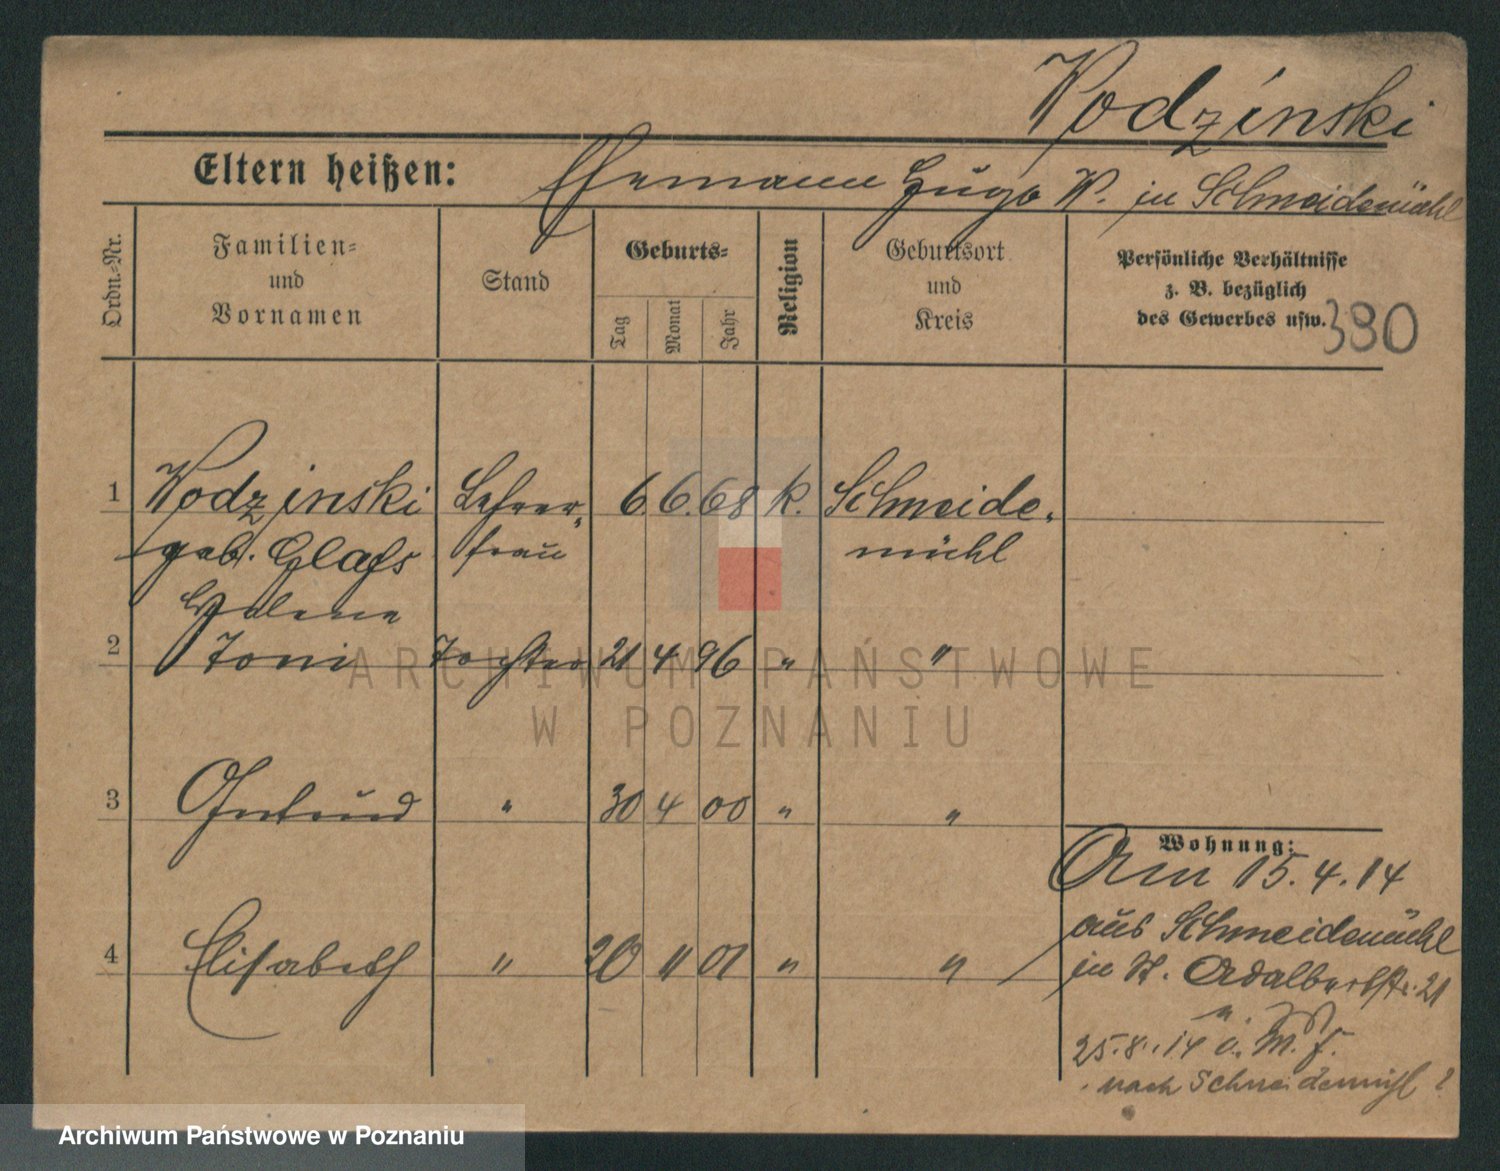 Wodzinski
Eltern heißen: Ehemann Hugo W. in Schneidemühl
Ordn.-Nr.
Familien-
und
Vornamen
Stand
Geburts-
Tag
Monat
Jahr
Religion
Geburtsort
und
Kreis
Persönliche Verhältnisse
z. B. bezüglich
des Gewerbes usw.
390
1 Wodzinski Lehrer- 6 6. 68 k. Schneide-
geb. Glass frau mühl
Helene
2 Toni Tochter 21 4 96 " "
ARCHIWUM PAŃSTWOWE
W POZNANIU
3 Gertrud " 30 4 00 " "
Wohnung:
Am 15.4.14
4 Elisabeth " 20 11 01 " "
aus Schneidemühl
in St. Adalbertstr. 21
25.8.14 v. M. F.
nach Schneidemühl
Archiwum Państwowe w Poznaniu